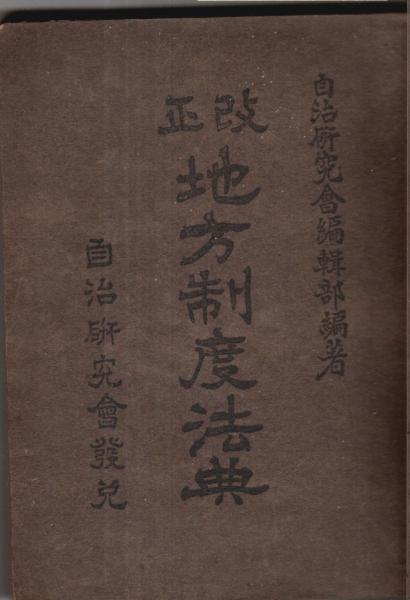 自治硏究會編輯部編著
改正
地方制度法典
自治硏究會發兌